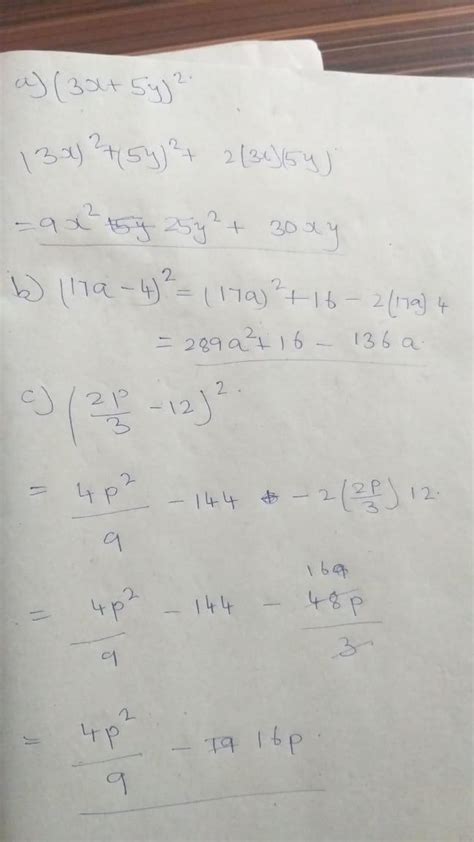 a) (3x + 5y)².
(3x)² + (5y)² + 2(3x)(5y)
= 9x² 25y² + 30xy
b) (17a - 4)² = (17a)² + 16 - 2(17a) 4
= 289a² + 16 - 136a.
c) (2p/3 - 12)².
= 4p²/9 - 144 - 2(2p/3) 12.
= 4p²/9 - 144 - 48p/3
= 4p²/9 - 16p.